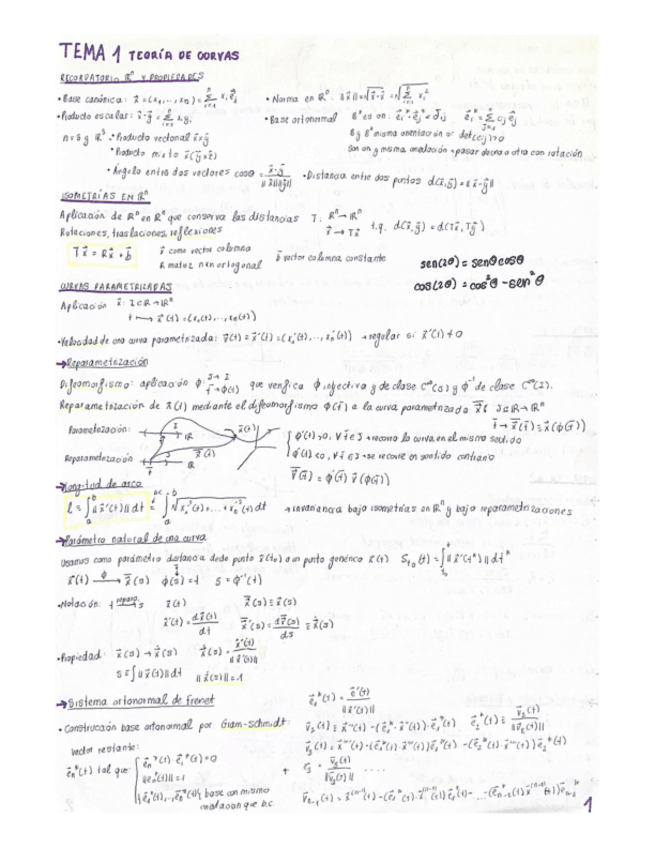 TEMA 1 TEORÍA DE CURVAS
RECORDATORIO Rⁿ Y PROPIEDADES
• Base canónica: x⃗ = (x₁,...,xₙ) = Σ xᵢe⃗ᵢ • Norma en Rⁿ: ||x⃗|| = √(x⃗·x⃗) = √(Σ xᵢ²)
• Producto escalar: x⃗·y⃗ = Σ xᵢyᵢ • Base ortonormal B* es on: e⃗ᵢ*·e⃗ⱼ* = δᵢⱼ e⃗ᵢ* = Σ cᵢⱼe⃗ⱼ
n=3 y R³ • Producto vectorial x⃗×y⃗ B y B* misma orientación si det(cᵢⱼ)>0
• Producto mixto x⃗(y⃗×z⃗) Son on y misma orientación → pasar de una a otra con rotación
• Ángulo entre dos vectores cosα = x⃗·y⃗ / ||x⃗||||y⃗|| • Distancia entre dos puntos d(x⃗,y⃗) = ||x⃗-y⃗||
ISOMETRÍAS EN Rⁿ
Aplicación de Rⁿ en Rⁿ que conserva las distancias T: Rⁿ→Rⁿ
Rotaciones, traslaciones, reflexiones x⃗→Tx⃗ t.q. d(x⃗,y⃗) = d(Tx⃗,Ty⃗)
Tx⃗ = Rx⃗ + b⃗ x⃗ como vector columna b⃗ vector columna constante
R matriz n×n ortogonal
sen(2θ) = senθcosθ
cos(2θ) = cos²θ - sen²θ
CURVAS PARAMETRIZADAS
Aplicación x⃗: I⊂R→Rⁿ
t ⟼ x⃗(t) = (x₁(t),...,xₙ(t))
• Velocidad de una curva parametrizada: v⃗(t) = x⃗'(t) = (x₁'(t),...,xₙ'(t)) → regular si x⃗'(t) ≠ 0
→ Reparametrización
Difeomorfismo: aplicación ϕ: J→I t̄→ϕ(t̄) que verifica ϕ biyectiva y de clase C^∞(J) y ϕ⁻¹ de clase C^∞(I).
Reparametrización de x⃗(t) mediante el difeomorfismo ϕ(t̄) a la curva parametrizada x̄⃗: J⊂R→Rⁿ
t̄→x̄⃗(t̄) ≡ x⃗(ϕ(t̄))
Parametrización: I R x⃗(t)
ϕ'(t̄)>0, ∀t̄∈J → recorro la curva en el mismo sentido
Reparametrización J t̄ R x̄⃗(t̄)
ϕ'(t̄)<0, ∀t̄∈J → se recorre en sentido contrario
v̄⃗(t̄) = ϕ'(t̄) v⃗(ϕ(t̄))
→ Longitud de arco
l = ∫ₐᵇ ||x⃗'(t)|| dt = ∫ₐᵇ √(x₁'²(t)+...+xₙ'²(t)) dt → invariancia bajo isometrías en Rⁿ y bajo reparametrizaciones
→ Parámetro natural de una curva
Usamos como parámetro distancia desde punto x⃗(t₀) a un punto genérico x⃗(t) S_t₀(t) = ∫ ||x⃗'(t*)|| dt*
x⃗(t) →ϕ x̄⃗(s) ϕ(s) = t s = ϕ⁻¹(t)
• Notación: t → s x⃗(t) x̄⃗(s) ≡ x⃗(s)
x⃗'(t) = dx⃗(t)/dt x̄⃗'(s) = dx⃗(s)/ds ≡ ẋ⃗(s)
• Propiedad: x⃗(s) → ẋ⃗(s) ẋ⃗(s) = x⃗'(t)/||x⃗'(t)||
s = ∫||x⃗'(t)|| dt ||ẋ⃗(s)|| = 1
→ Sistema ortonormal de Frenet e⃗₁*(t) = x⃗'(t)/||x⃗'(t)||
• Construcción base ortonormal por Gram-Schmidt: v⃗₂(t) ≡ x⃗''(t) - (e⃗₁*(t)·x⃗''(t))·e⃗₁*(t) e⃗₂*(t) ≡ v⃗₂(t)/||v⃗₂(t)||
Vector restante: v⃗₃(t) = x⃗'''(t) - (e⃗₁*(t)·x⃗'''(t))e⃗₁*(t) - (e⃗₂*(t)·x⃗'''(t))e⃗₂*(t)
e⃗ₙ*(t) tal que e⃗ₙ*(t)·e⃗ᵢ*(t) = 0 + e₃ = v⃗₃(t)/||v⃗₃(t)|| ....
||e⃗ₙ*(t)|| = 1
{e⃗₁*(t),...,e⃗ₙ*(t)} base con misma v⃗ₙ₋₁(t) = x⃗⁽ⁿ⁻¹⁾(t) - (e⃗₁*(t)·x⃗⁽ⁿ⁻¹⁾(t))e⃗₁*(t) - ...
orientación que b.c.
1